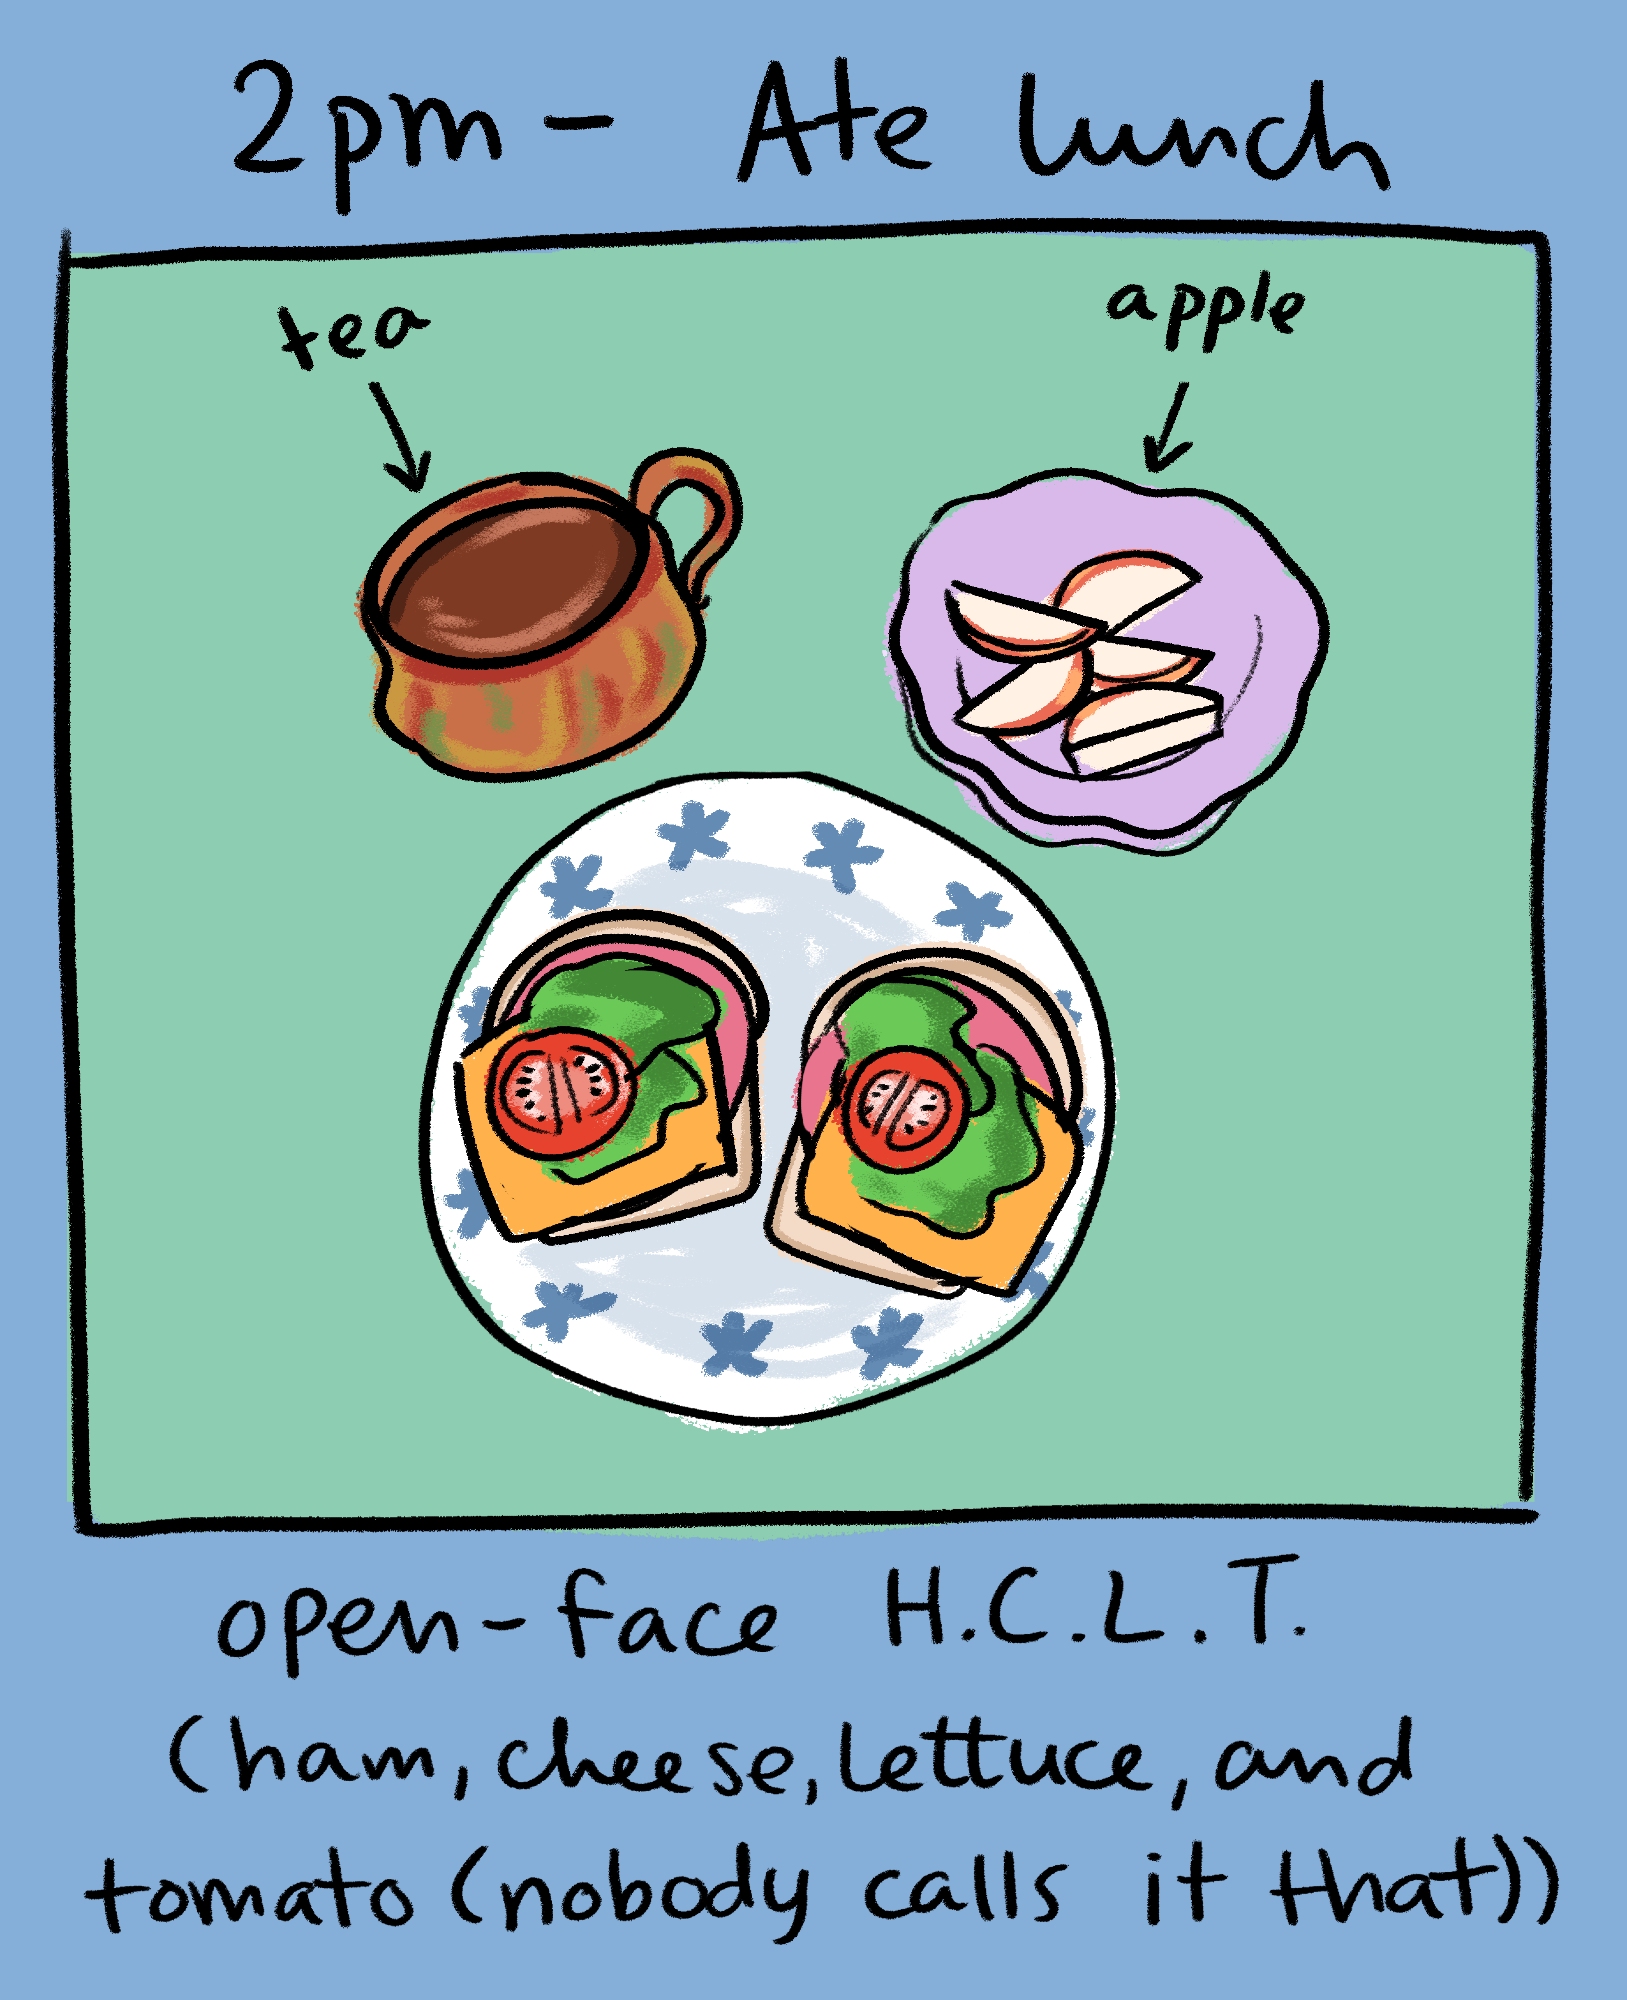 2pm - Ate lunch
tea
apple
open-face H.C.L.T.
(ham, cheese, lettuce, and
tomato (nobody calls it that))